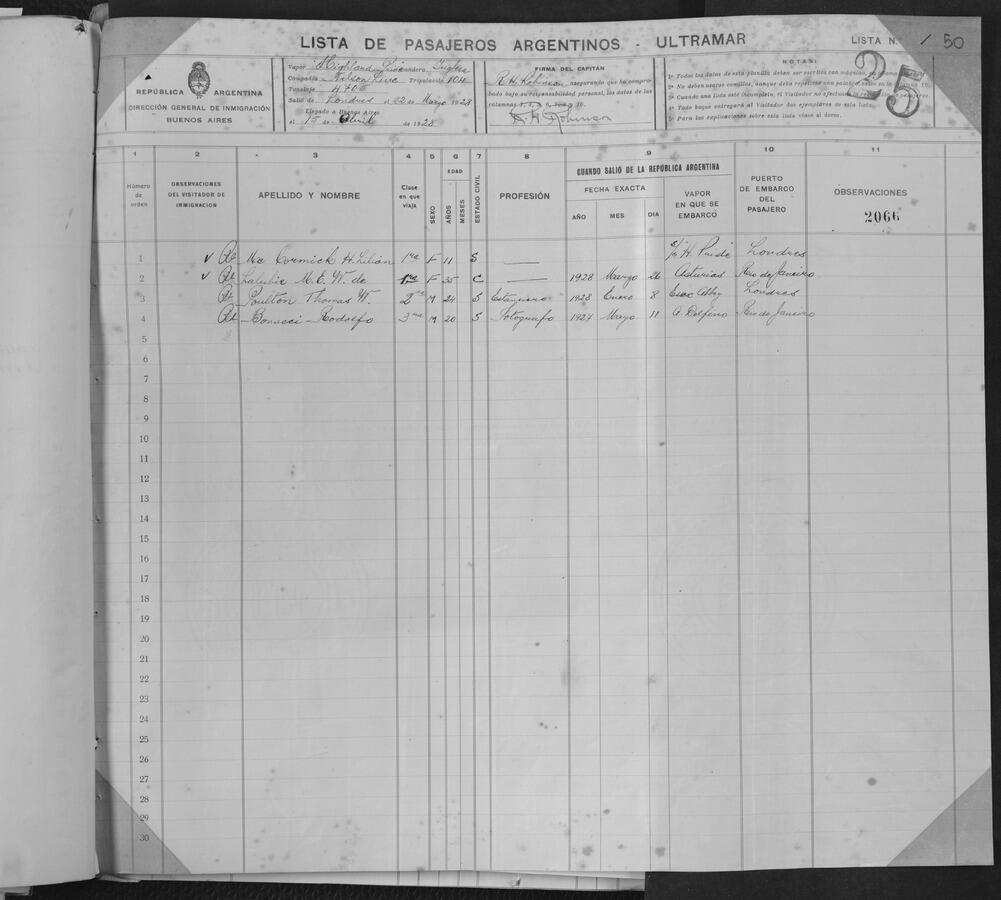 LISTA DE PASAJEROS ARGENTINOS - ULTRAMAR
LISTA N.° 1 50
25
REPÚBLICA ARGENTINA
DIRECCIÓN GENERAL DE INMIGRACIÓN
BUENOS AIRES
Vapor Highland Bandera Inglesa
Compañia Nelson Line Tripulación 104
Tonelaje 4705
Salió de Londres el 22 de Marzo 1928
Llegado a Buenos Aires
el 15 de Abril de 1928
FIRMA DEL CAPITÁN
R. H. Robinson, asegurando que ha compro-
bado bajo su responsabilidad personal, los datos de las
columnas
R. H. Robinson
NOTAS:
1ª Todos los datos de esta planilla deben ser escritos con máquina,
2ª No deben usarse comillas, aunque deba repetirse una misma
3ª Cuando una lista esté incompleta, el Visitador no efectuará la
4ª Todo buque entregará al Visitador dos ejemplares de esta lista.
5ª Para las explicaciones sobre esta lista véase al dorso.
1 2 3 4 5 6 7 8 9 10 11
Número de orden
OBSERVACIONES DEL VISITADOR DE INMIGRACION
APELLIDO Y NOMBRE
Clase en que viaja
SEXO
EDAD
AÑOS
MESES
ESTADO CIVIL
PROFESIÓN
CUANDO SALIÓ DE LA REPÚBLICA ARGENTINA
FECHA EXACTA
AÑO MES DIA
VAPOR EN QUE SE EMBARCÓ
PUERTO DE EMBARCO DEL PASAJERO
OBSERVACIONES
2066
1 Mc Cormick H. Lilian 1ra F 11 S — H. Pride Londres
2 M. E. W. de 1ra F 35 C — 1928 Marzo 26 Asturias Rio de Janeiro
3 Poulton Thomas W. 2da M 24 S Estanciero 1928 Enero 8 Londres
4 Bonacci Rodolfo 3ra M 20 S Fotografo 1927 Mayo 11 A. Delfino Rio de Janeiro
5
6
7
8
9
10
11
12
13
14
15
16
17
18
19
20
21
22
23
24
25
26
27
28
29
30